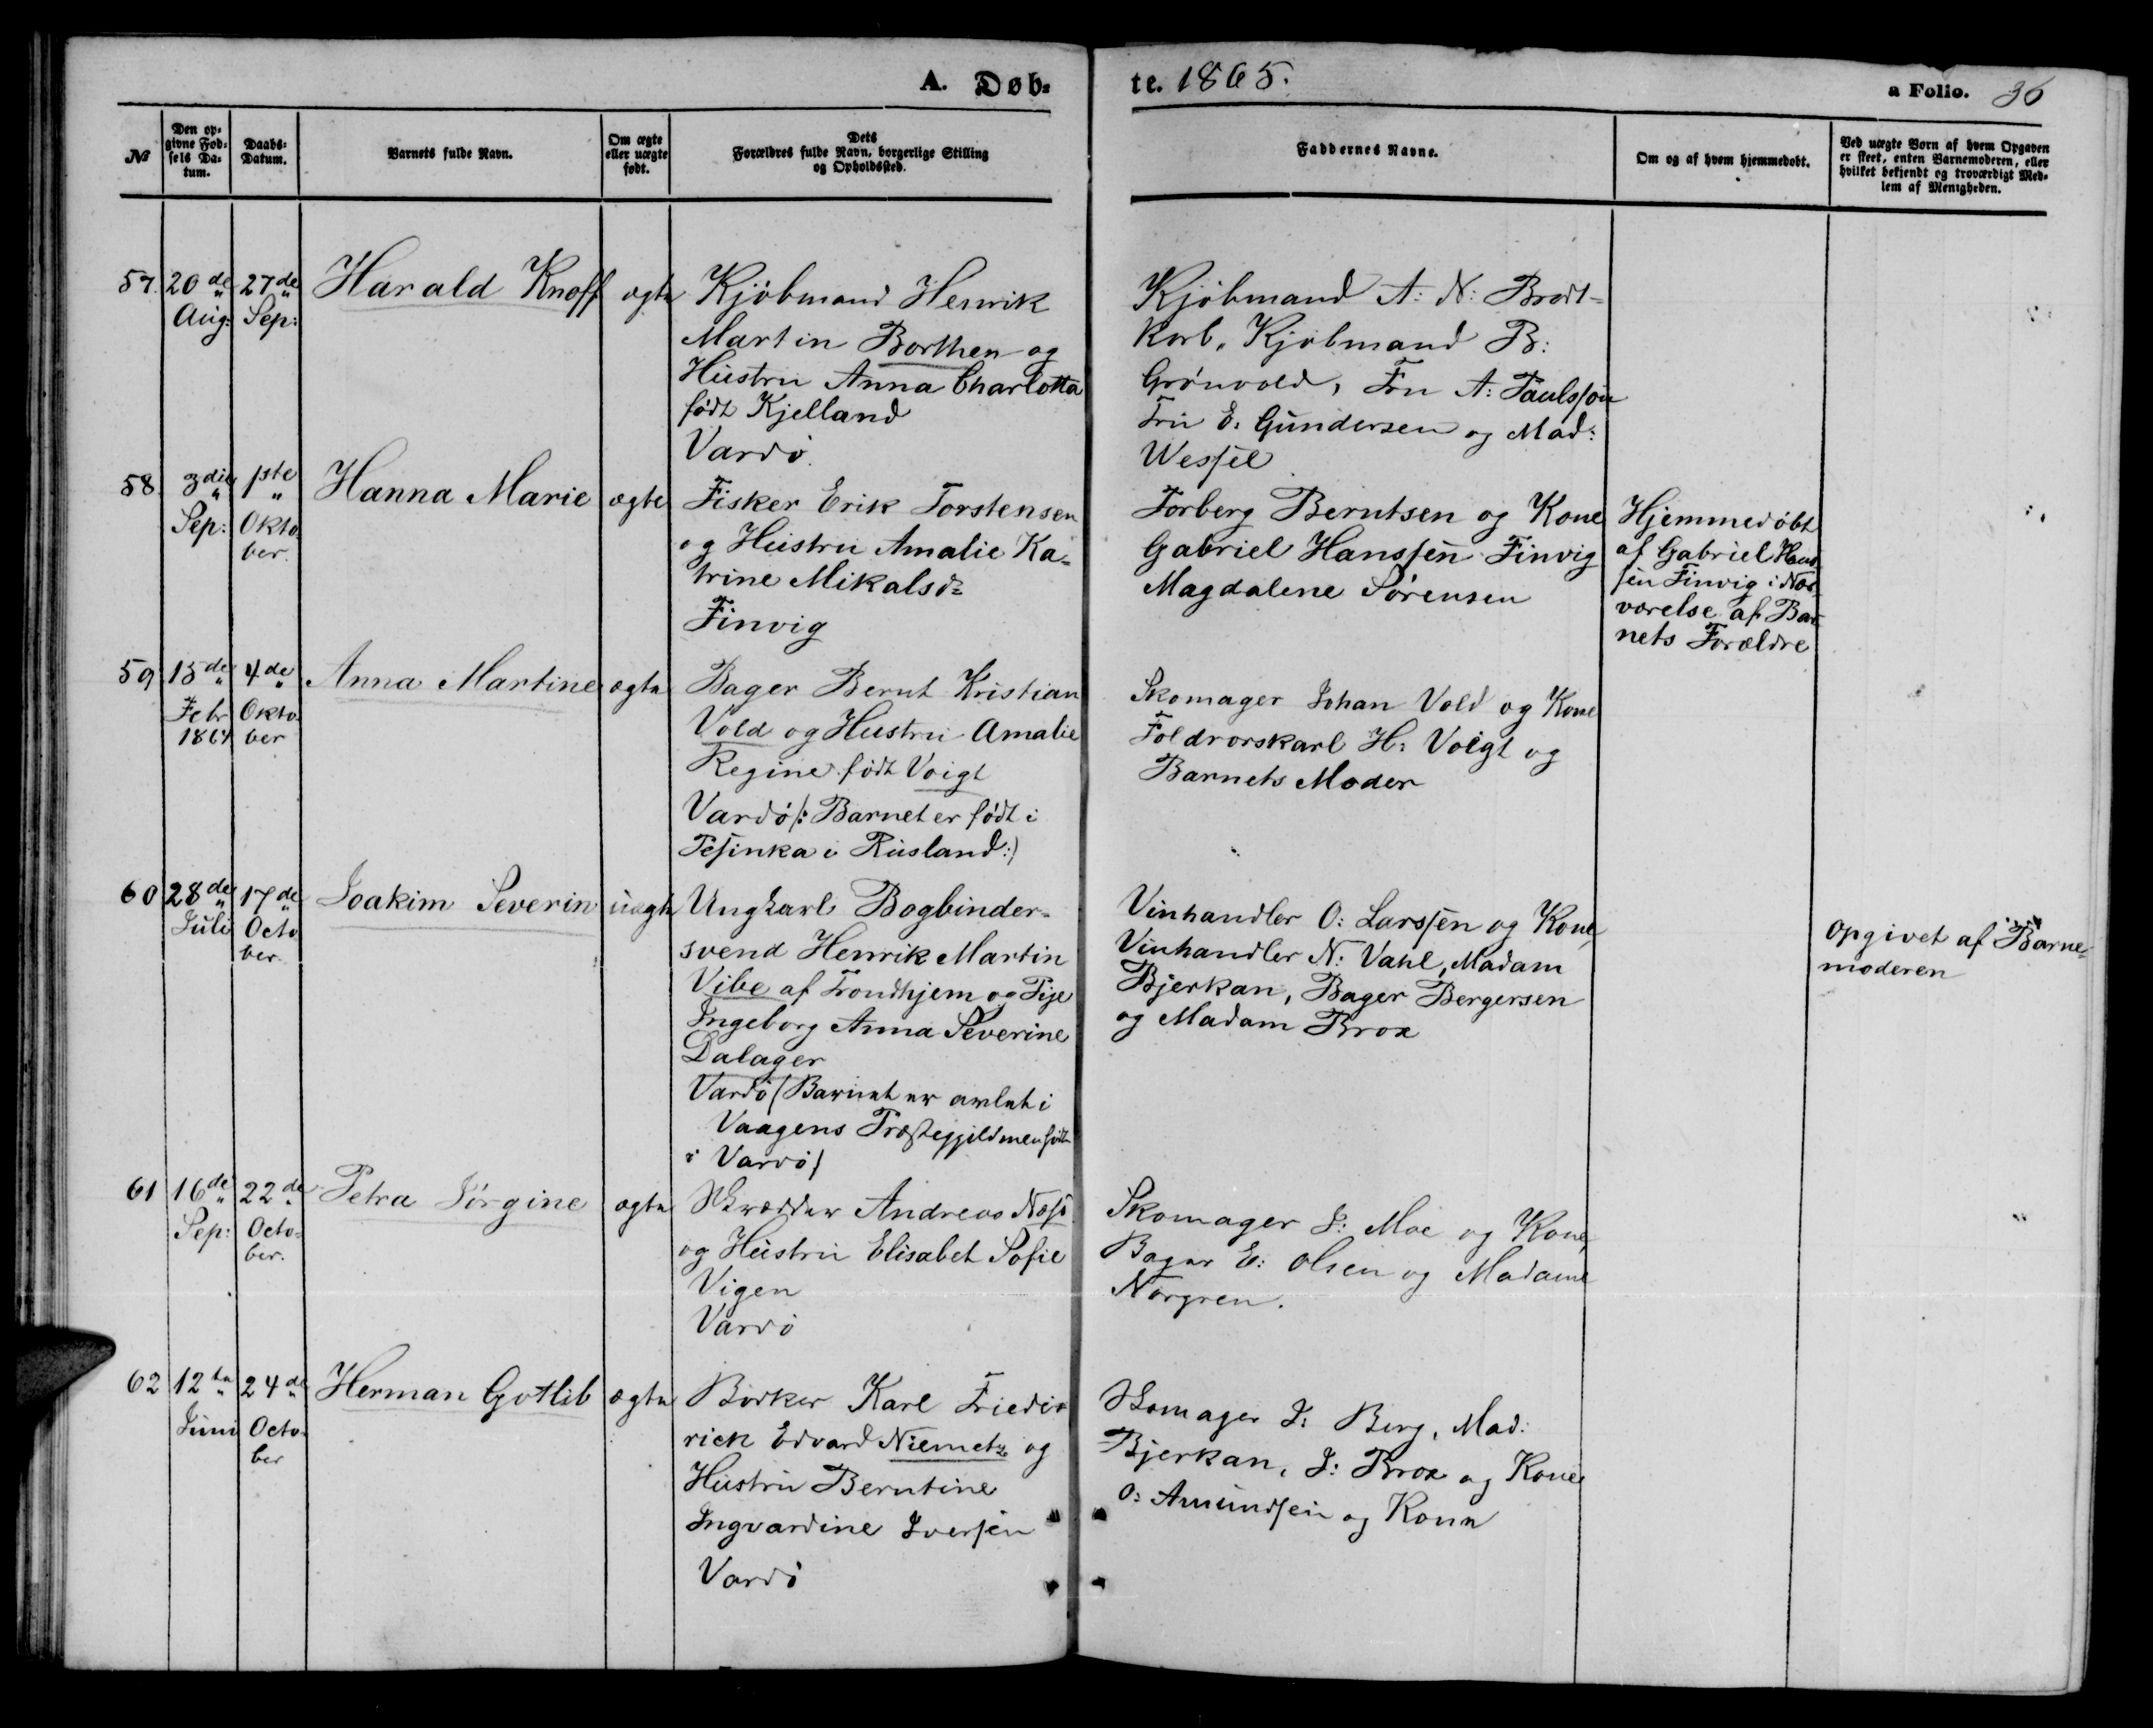 A. Døb-
te. 1865.
a Folio. 36
№
Den op-
givne Fød-
sels Da-
tum.
Daabs-
Datum.
Barnets fulde Navn.
Om ægte
eller uægte
født.
Dets
Forældres fulde Navn, borgerlige Stilling
og Opholdssted.
Faddernes Navne.
Om og af hvem hjemmedøbt.
Ved uægte Børn af hvem Opgaven
er skeet, enten Barnemoderen, eller
hvilket bekjendt og troværdigt Med-
lem af Menigheden.
57.
20de
Aug:
27de
Sep:
Harald Knoff
ægte
Kjöbmand Henrik
Martin Borthen og
Hustru Anna Charlotta
født Kjelland
Vardö.
Kjöbmand A: N: Brodt-
korb, Kjöbmand B:
Grönvold, Fru A: Paulsson
Fru E. Gundersen og Mad:
Wessel
58.
3die
Sep:
1ste
Okto-
ber.
Hanna Marie
ægte
Fisker Erik Torstensen
og Hustru Amalie Ka-
trine Mikalsd=
Finvig
Torberg Berntsen og Kone
Gabriel Hanssen Finvig
Magdalene Sörensen
Hjemmedöbt
af Gabriel Hans
sen Finvig i Nær
værelse af Bar
nets Forældre
59
15de
Febr
1864
4de
Okto-
ber
Anna Martine
ægte
Bager Bernt Kristian
Vold og Hustru Amalie
Regine født Voigt
Vardö /: Barnet er født i
Pesinka i Rusland:/
Skomager Johan Vold og Kone
Foldrorskarl H: Voigt og
Barnets Moder
60
28de
Juli
17de
Octo
ber.
Joakim Severin
uægte
Ungkarl Bogbinder-
svend Henrik Martin
Vibe af Trondhjem og Pige
Ingeborg Anna Severine
Dalager
Vardö / Barnet er avlet i
Vaagens Præstegjeld men født
i Vardö /
Vinhandler O: Larssen og Kone,
Vinhandler N: Vahl, Madam
Bjerkan, Bager Bergersen
og Madam Brox
Opgivet af Barne-
moderen
61
16de
Sep:
22de
Octo-
ber.
Petra Jörgine
ægte
Skrædder Andreas Næss
og Hustru Elisabet Sofie
Vigen
Vardö
Skomager J: Moe og Kone,
Bager E: Olsen og Madame
Norgren.
62
12te
Juni
24de
Octo-
ber
Herman Gotlib
ægte
Bödker Karl Friede
rick Edvard Niemetz og
Hustru Berntine
Ingvardine Iversen
Vardö
Skomager J: Berg, Mad:
Bjerkan, J: Brox og Kone
O: Amundsen og Kone